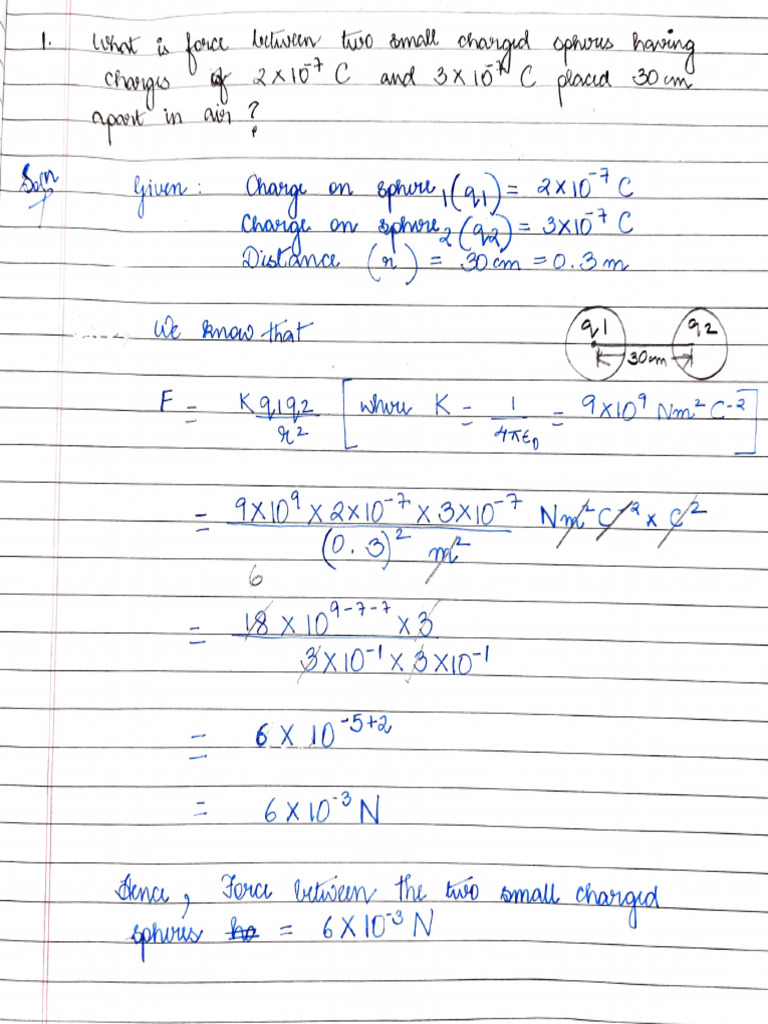 1. What is force between two small charged spheres having
charges of 2×10⁻⁷ C and 3×10⁻⁷ C placed 30 cm
apart in air ?
Soln
Given : Charge on sphere₁ (q1) = 2×10⁻⁷ C
Charge on sphere₂ (q2) = 3×10⁻⁷ C
Distance (r) = 30 cm = 0.3 m
We know that
q1 q2
30cm
F = K q1q2 / r² [ where K = 1 / 4πε₀ = 9×10⁹ Nm² C⁻² ]
= 9×10⁹ × 2×10⁻⁷ × 3×10⁻⁷ / (0.3)² m² Nm² C⁻² × C²
6
= 18 × 10⁹⁻⁷⁻⁷ × 3 / 3×10⁻¹ × 3×10⁻¹
= 6 × 10⁻⁵⁺²
= 6×10⁻³ N
Hence, Force between the two small charged
spheres = 6×10⁻³ N